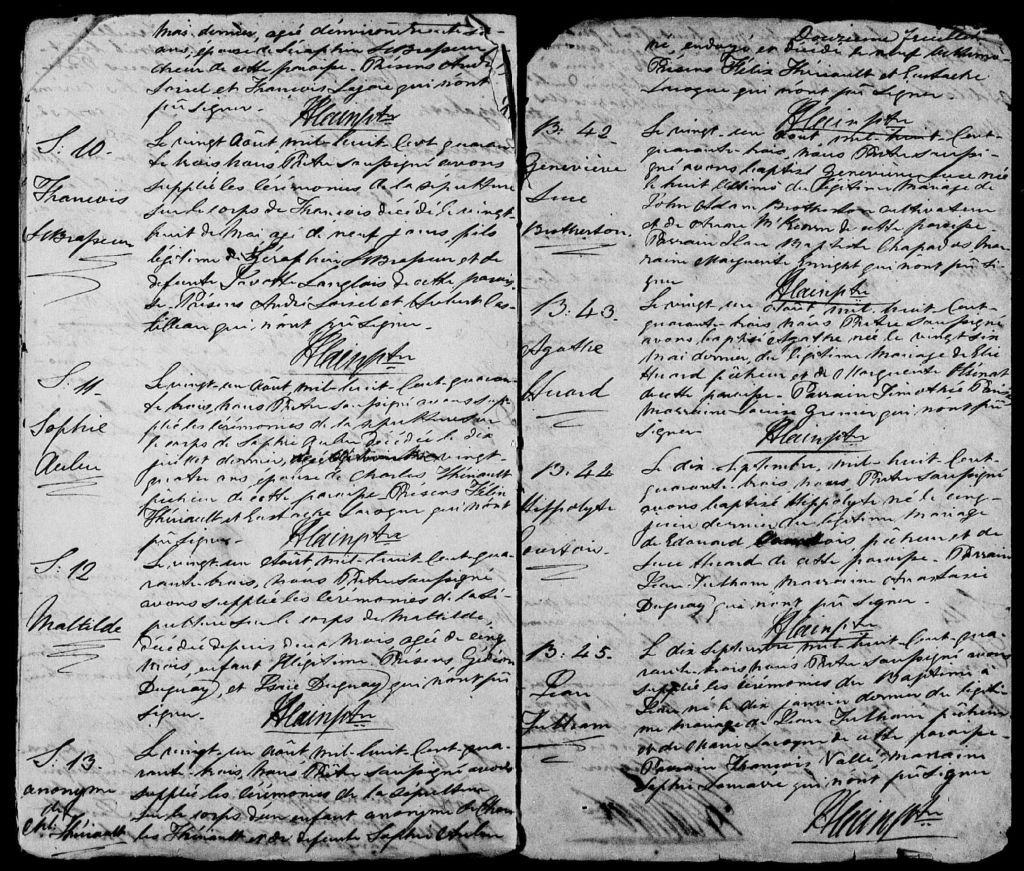 Mai dernier, agée d'environ trente six
ans, épouse de Séraphin LeBrasseur
cheur de cette paroisse. Présens André
Loisel et François Lagarc qui n'ont
pû signer.
S: 10.
François
LeBrasseur
Le vingt Août mil-huit Cent quaran-
te trois, nous Prêtre soussigné avons
supplié les cérémonies de la sépulture
sur le corps de François décédé le vingt
huit de Mai agé de neuf jours, fils
légitime de Séraphin LeBrasseur et de
défunte Javotte Langlois de cette parois-
se. Présens André Loisel et Hubert Cas-
tillau qui n'ont pû signer.
S: 11.
Sophie
Aubu
Le vingt-un Août mil-huit Cent-quaran-
te trois, nous Prêtre soussigné avons sup-
plié les cérémonies de la sépulture sur
le corps de Sophie Aubu décédée le dix
juillet dernier, vingt-
quatre ans, épouse de Charles Thériault
pêcheur de cette paroisse. Présens Félix
Thériault et Eustache Larogue qui n'ont
pû signer.
S: 12
Mathilde
Le vingt-un Août mil-huit Cent-qua-
rante-trois, nous Prêtre soussigné
avons supplié les Cérémonies de la Sé-
pulture sur le corps de Mathilde,
décédée depuis deux Mois agée de cinq
mois, enfant Illégitime. Présens Gédéon
Duguay, et Isaïe Duguay qui n'ont pû
signer.
S: 13.
anonyme
de
Chs Thériault
Le vingt-un Août mil-huit Cent-qua-
rante-trois, nous Prêtre soussigné avons
supplié les cérémonies de la sépulture
sur le corps d'un enfant anonyme de Char-
les Thériault et de défunte Sophie Aubu
Douzieme Feuillet
né, endoyé et décédé le neuf ultimo
Présens Félix Thériault et Eustache
Larogue qui n'ont pû signer.
B: 42
Geneviève
Luce
Brotherton.
Le vingt-un Août mil-huit Cent-
quarante-trois, nous Prêtre soussi-
gné avons baptisé Geneviève Luce née
le huit ultimo du légitime Mariage de
John Adam Brotherton cultivateur
et de Anne McKeown de cette paroisse.
Parrain Jean Baptiste Chapados Mar-
raine Marguerite Enright qui n'ont pû si-
gner
B: 43.
Agathe
Huard
Le vingt-un Août mil-huit Cent-
quarante-trois, nous Prêtre soussigné
avons baptisé Agathe née le vingt six
Mai dernier, du légitime Mariage de Elie
Huard pêcheur et de Marguerite
de cette paroisse. Parrain Timothé
Marraine Louise Grenier qui n'ont pû
signer
B: 44
Hippolyte
Le dix septembre, mil-huit Cent-
quarante-trois nous Prêtre soussigné
avons baptisé Hippolyte né le cinq
dernier du légitime Mariage
de Edouard pêcheur et de
Luce Huard de cette paroisse. Parrain
Jean Fulham Marraine Anastasie
Duguay qui n'ont pû signer.
B: 45.
Jean
Fulham
Le dix septembre mil-huit Cent-qua-
rante-trois nous Prêtre soussigné avons
supplié les cérémonies du Baptême à
Jean né le dix janvier dernier du légiti-
me mariage de Jean Fulham pêcheur
et de Larogue de cette paroisse.
Parrain François Vallé, Marraine
Sophie Lamarre qui n'ont pû signer